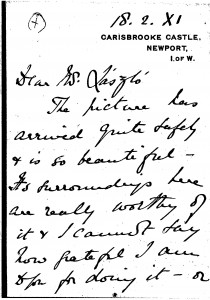 18. 2. XI
CARISBROOKE CASTLE,
NEWPORT,
I. OF W.
Dear Mr. László
The picture has
arrived quite safely
& is so beautiful -
Its surroundings here
are really worthy of
it & I cannot say
how grateful I am
for doing it - or